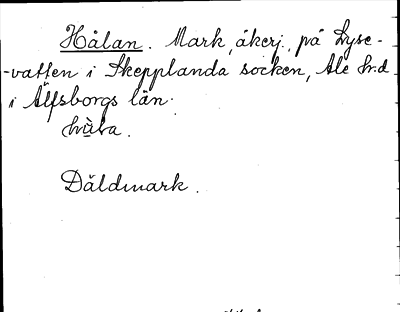 Hålan. Mark, åkerj., på Lyse-
-vatten i Skepplanda socken, Ale hrd
i Älfsborgs län.
Däldmark.